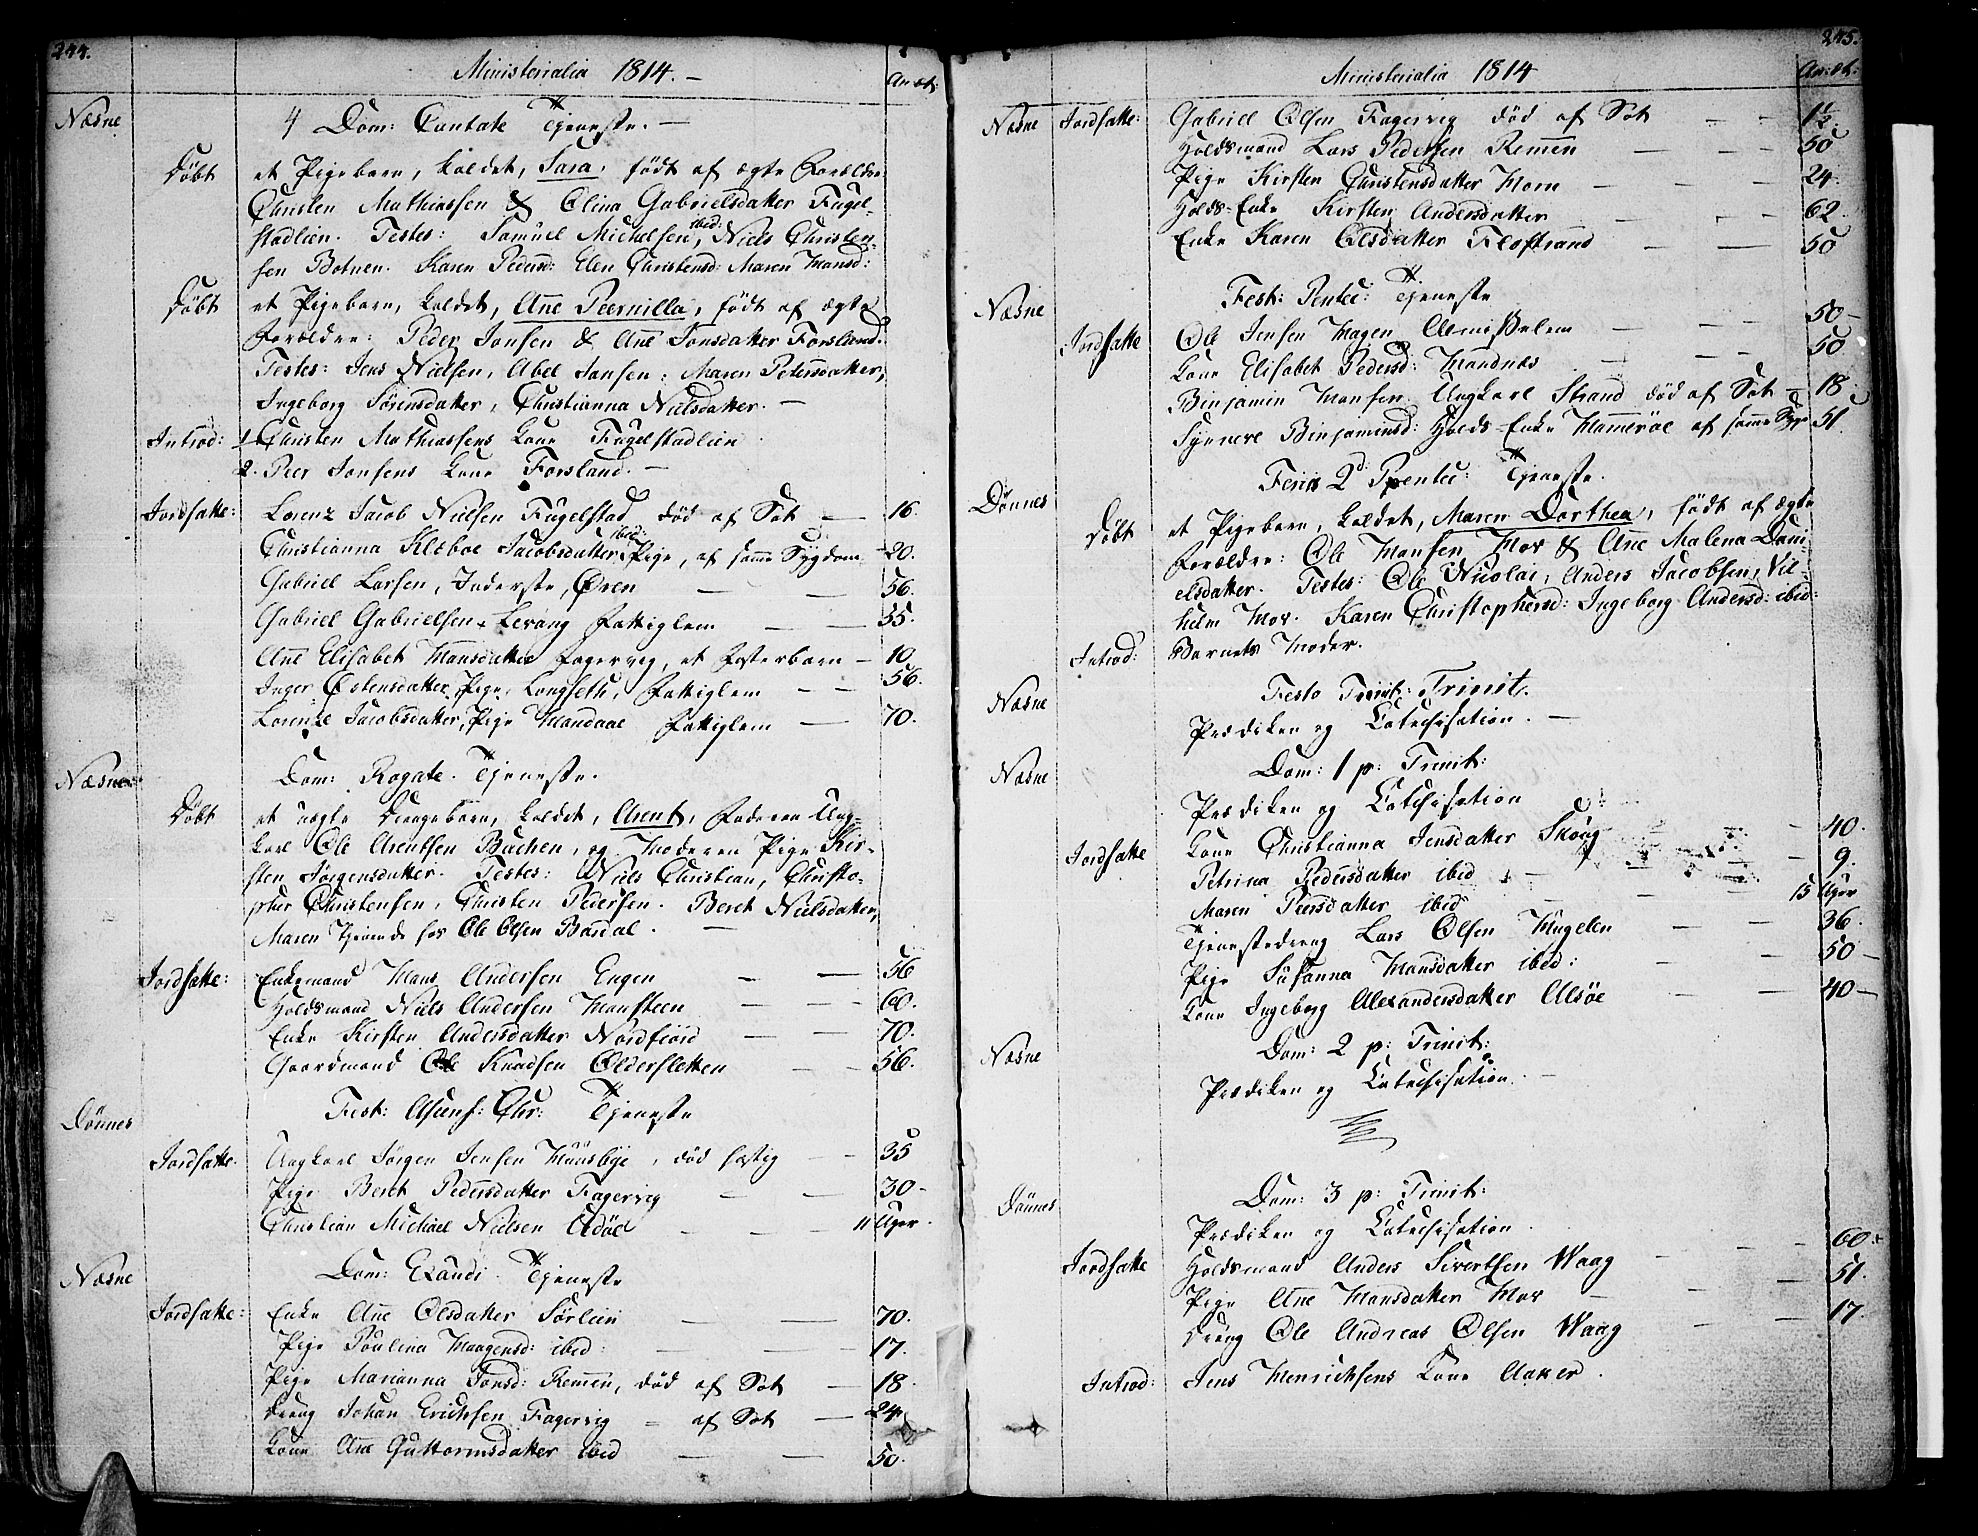 244.
Ministerialia 1814. –
An: æt:
Næsne
4 Dom: Cantate Tjeneste. –
Døbt
et Pigebarn, kaldet, Sara, født af ægte Forældre:
Christen Mathiassen & Olina Gabrielsdatter Fugel-
stadlien. Testes: Samuel Michelsen ibid:, Niels Christen-
sen Botnen. Karen Pedersd: Elen Christensd: Maren Hansd:
Døbt
et Pigebarn, kaldet, Ane Peernilla, født af ægte
Forældre: Peder Jonsen & Ane Jonsdatter Forsland.
Testes: Jens Nielsen, Abel Jansen, Maren Petersdatter,
Ingeborg Sørensdatter, Christianna Nielsdatter. –
Introd: 1. Christen Mathiassens Kone Fugelstadlien
2. Peer Jonsens Kone Forsland. –
Jordsatte:
Lorenz Jacob Nielsen Fugelstad død af Sot – 16.
Christianna Klæboe Jacobsdatter ibid: Pige, af samme Sygdom 20.
Gabriel Larsen, Inderste, Øren – – 56.
Gabriel Gabrielsen Levang Fattiglem – – 55.
Ane Elisabet Hansdatter Fagervig, et Fosterbarn – 10.
Inger Østensdatter, Pige, Langseth, Fattiglem – – 56.
Lorenze Jacobsdatter, Pige Handaae Fattiglem – 70.
Næsne
Dom: Rogate. Tjeneste.
Døbt
et uægte Drengebarn, kaldet, Arent, Faderen Ung-
karl Ole Arentsen Bachen, og Moderen Pige Kir-
sten Jørgensdatter. Testes: Niels Christian, Christo-
pher Christensen, Christen Pedersen. Beret Nielsdatter,
Maren tjenende hos Ole Olsen Bardal. –
Jordsatte:
Enkemand Hans Andersen Engen – – 56
Holdsmand Niels Andersen Hansteen – – – 60.
Enke Kirsten Andersdatter Nordfiord – – 70.
Gaardmand Ole Knudsen Oldersletten – – 56.
Dønnes
Fest: Ascens: Chr: Tjeneste
Jordsatte.
Ungkarl Jørgen Jensen Huusbye, død hastig – – 35
Pige Beret Pedersdatter Fagervig – – 30 –
Christian Michael Nielsen – – 11 Uger.
Næsne
Dom: Exaudi. Tjeneste
Jordsatte:
Enke Ane Olsdatter Sørlien – – 70.
Pige Paulina Haagensd: ibid: – – – 17.
Pige Marianna Jonsd: Remen, død af Sot – 18.
Dreng Johan Erichsen Fagervig – af Sot – 24
Kone Ane Guttormsdatter ibid – – 50.
245.
Ministerialia 1814
An: æt:
Næsne
Jordsatte:
Gabriel Olsen Fagervig død af Sot – – 1½
Holdsmand Lars Pedersen Remen – – – 50
Pige Kirsten Christensdatter Horn – – – 24.
Holds-Enke Kirsten Andersdatter – – – 62.
Enke Karen Olsdatter Flostrand – – 50
Næsne
Fest: Pentec: Tjeneste
Jordsatte
Ole Jensen Hagen Almisselem – – – 50 –
Kone Elisabet Pedersd: Handnæs – – – 50
Binjamin Hansen Ungkarl Strand død af Sot – 18.
Synnere Binjaminsd: Holds-Enke Hammerøe af samme Syge 51.
Dønnes
Feria 2d Pentec: Tjeneste.
Døbt
et Pigebarn, kaldet, Maren Dorthea, født af ægte
Forældre: Ole Hansen Mov & Ane Malena Dani-
elsdatter. Testes: Ole Nicolai, Anders Jacobsen, Vil-
helm Mov. Karen Christophersd: Ingeborg Andersd: ibid:
Introd:
Barnets Moder.
Næsne
Festo Trinit: Trinit.
Prædiken og Catechisation. –
Næsne
Dom: 1 p: Trinit:
Prædiken og Catechisation
Jordsatte
Kone Christianna Jensdatter Skoug – 40.
Petrina Pedersdatter ibid – – 9.
Maren Peersdatter ibid – – – 15 Uger
Tjenestedreng Lars Olsen Hugelen – – – 36.
Pige Susanna Hansdatter ibid: – – 50 –
Kone Ingeborg Alexandersdatter Alsøe – – 40 –
Næsne
Dom: 2 p: Trinit:
Prædiken og Catechisation. –
Dønnes
Dom: 3 p: Trinit:
Prædiken og Catechisation.
Jordsatte
Holdsmand Anders Sivertsen Waag – – – 60.
Pige Ane Hansdatter Mov – – 51.
Dreng Ole Andreas Olsen Waag – – 17.
Introd:
Jens Henrichsens Kone Aaker.